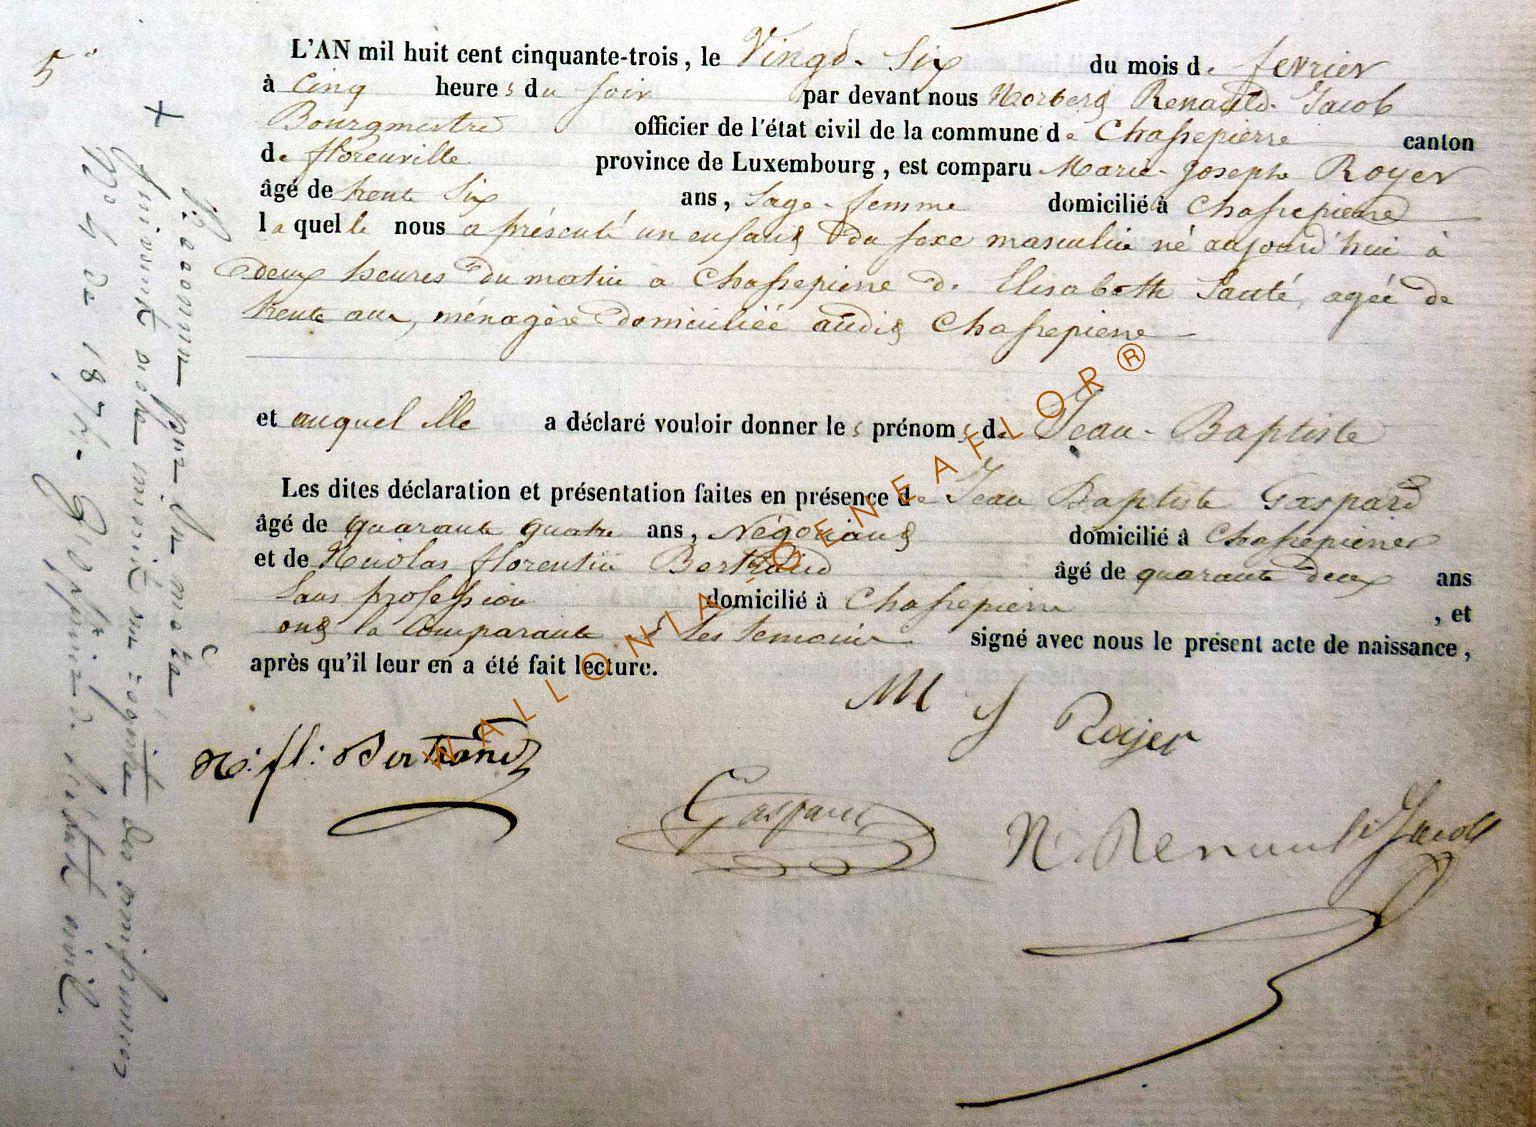 5°
L'AN mil huit cent cinquante-trois, le Vingt-Six du mois de fevrier
à Cinq heures du soir par devant nous Norbert Renauld-Jacob
Bourgmestre officier de l'état civil de la commune de Chassepierre canton
de florenville province de Luxembourg, est comparu Marie-Joseph Royer
âgé de trente Six ans, Sage-femme domicilié à Chassepierre
laquelle nous a présenté un enfant du sexe masculin né aujourd'hui à
deux heures du matin à Chassepierre de Elisabeth Santé, agée de
trente ans, ménagère domiciliée audit Chassepierre
et auquel Elle a déclaré vouloir donner les prénoms de Jean-Baptiste
Les dites déclaration et présentation faites en présence de Jean Baptiste Gaspard
âgé de quarante quatre ans, Négociant domicilié à Chassepierre
et de Nicolas florentin Bertrand âgé de quarante deux ans
Sans profession domicilié à Chassepierre, et
ont la Comparante et Les temoins signé avec nous le présent acte de naissance,
après qu'il leur en a été fait lecture.
M J Rojer
N: fl: Bertrand
Gaspard
N. Renauld Jacob
+ Reconnu par sa mère
suivant acte inscrit au registre des naissances
N° 4 de 187 . de l'état civil.
WALLONIA GENEAFLOR ®